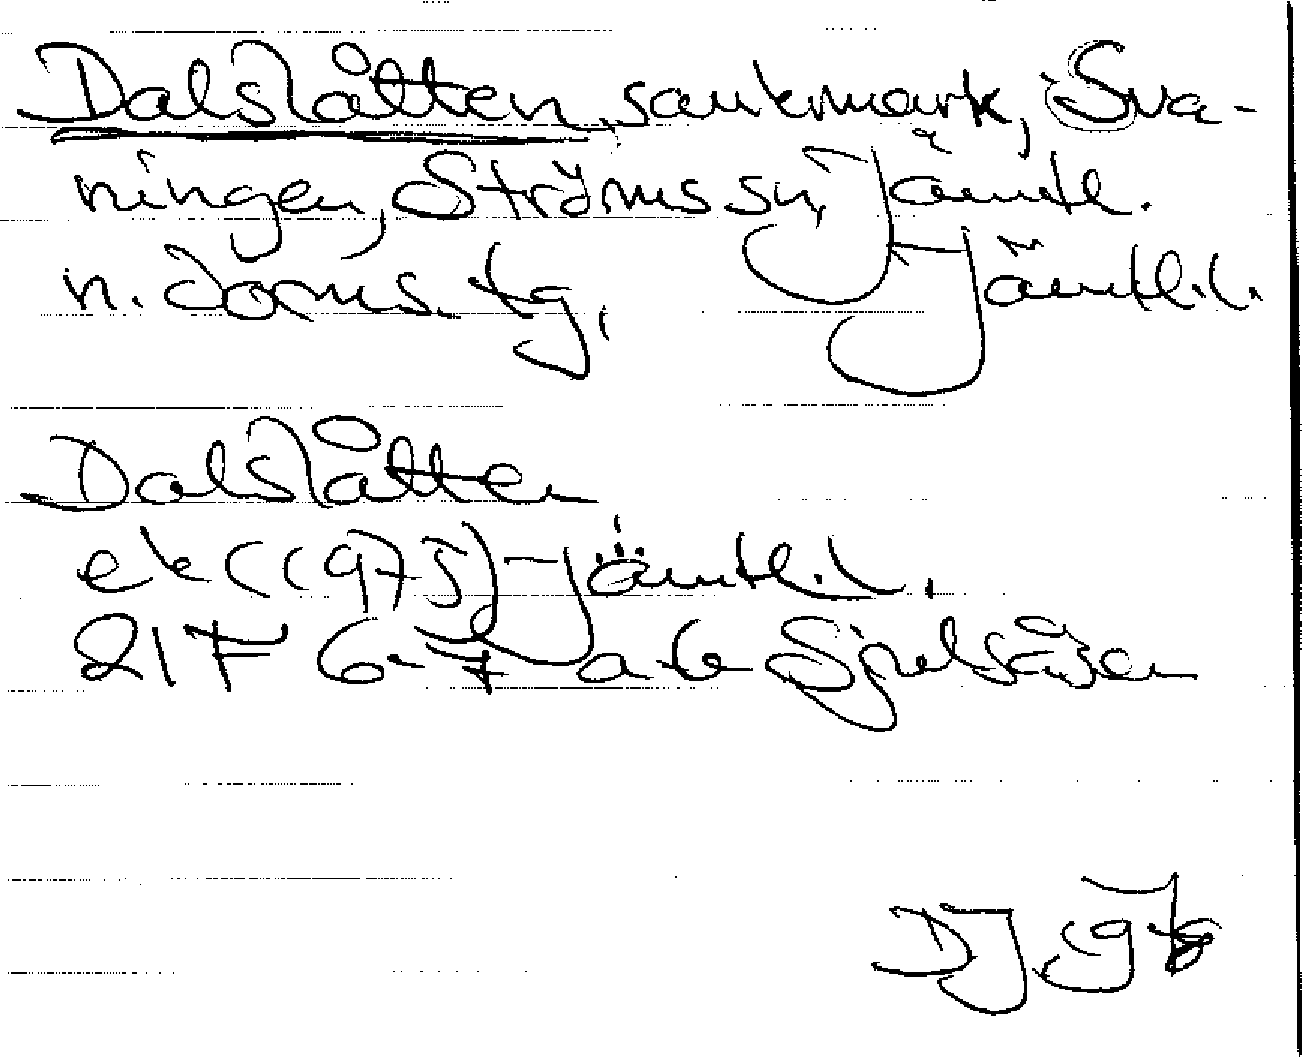 Dalslåtten, sankmark, Sva-
ningen, Ströms sn, Jämtl.
n. doms. tg, Jämtl. l.
Dalslåtten
ek (1975) Jämtl. l.
21F 6-7 a-b Spelsåsen
DJ